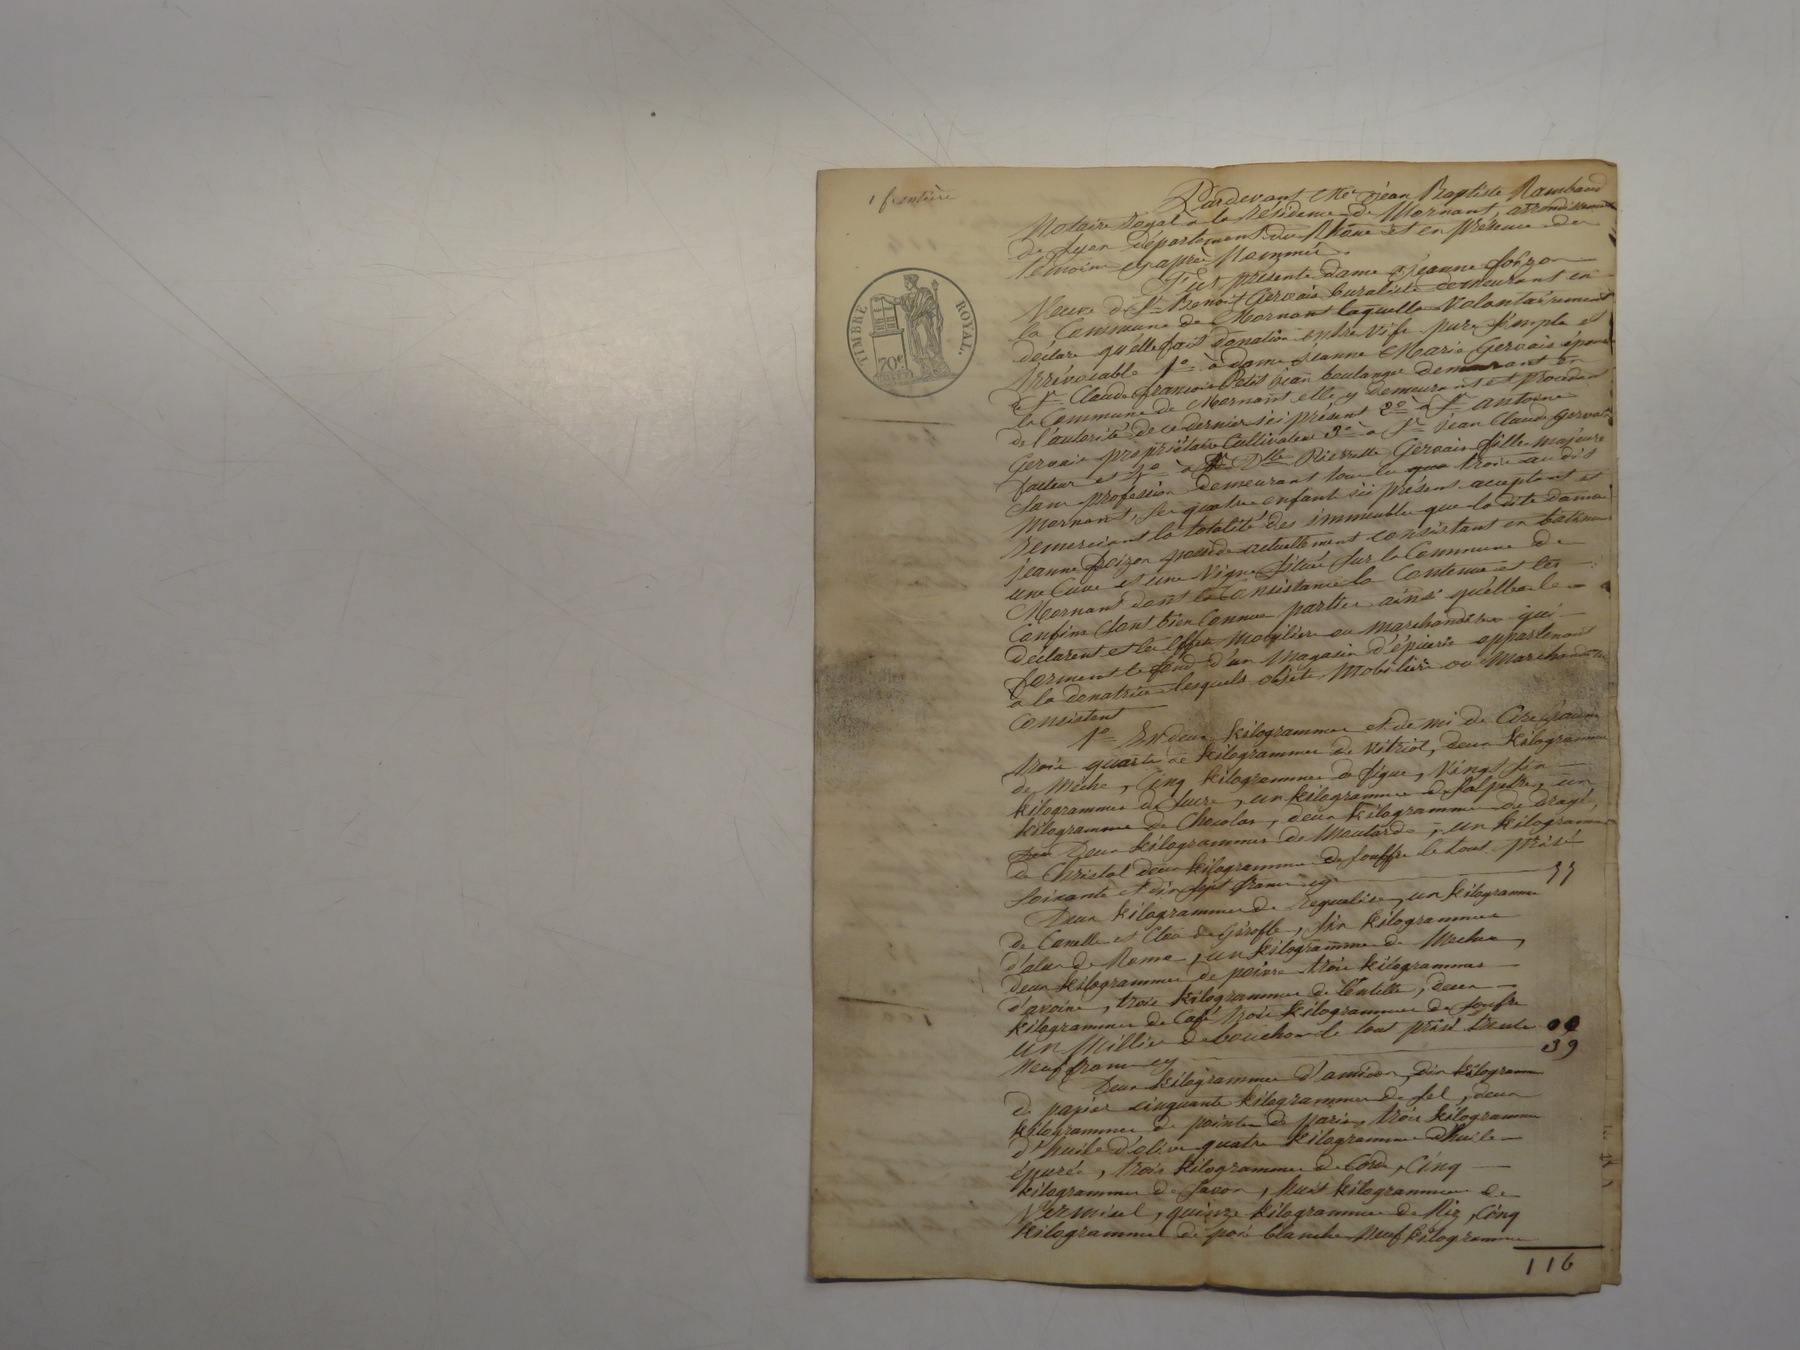 Pardevant Me jean Baptiste Rambaud
Notaire royal a la résidence de Mornant, arrondissement
de Lyon département du Rhône et en présence de
témoins cy après Nommés.
TIMBRE ROYAL.
70c
Fut présente dame jeanne
Veuve de Sr Benoit Gervais buraliste demeurant en
la Commune de Mornant laquelle Volontairement
déclare qu'elle fait donation entre vifs pure simple et
irrévocable 1o à dame jeanne Marie Gervais épouse
de Sr Claude françois Petit jean boulanger demeurant en
la Commune de Mornant elle y demeurant et procédant
de l'autorité de ce dernier ici présent 2o à Sr antoine
Gervais propriétaire Cultivateur 3o à Sr jean Claude Gervais
facteur et 4o à Dlle Pierrette Gervais fille majeure
sans profession demeurant tous les trois au dit
Mornant, ses quatre enfants ici présent acceptant et
remerciant la totalité des immeubles que la dite dame
jeanne possède actuellement consistant en batiment
une Cuve et une vigne située sur la Commune de
Mornant dont la Consistance la Contenue et les
Confins sont bien Connus parties ainsi qu'elles le
déclarent et les effets mobiliers ou marchandises qui
forment le fond d'un Magasin d'épicerie appartenant
à la donatrice lesquels objets Mobiliers ou Marchandises
Consistent
1o En deux kilogrammes et demi de Cire jaune
trois quarts de kilogrammes de vitriol, deux kilogrammes
de Mèche, Cinq kilogrammes de figue, Vingt six
kilogrammes de sucre, un kilogramme de salpêtre, un
kilogramme de Chocolat, deux kilogrammes de dragé,
Deux kilogrammes de Moutarde, un kilogramme
de Cristal deux kilogrammes de souffre le tout prisé
soixante et dix sept francs cy 77
Deux kilogrammes de Reguelisse, un kilogramme
de Canelle et Clou de Girofle, six kilogrammes
d'alun de Rome, un kilogramme de Meches,
deux kilogrammes de poivre trois kilogrammes
d'avoine, trois kilogrammes de lentille, deux
kilogrammes de Café trois kilogrammes de soufre
un Millier de bouchons le tout prisé trente
Neuf francs cy 39
Deux kilogrammes d'amidon, dix kilogrammes
de papier cinquante kilogrammes de sel, deux
kilogrammes de pointe de paris, trois kilogrammes
d'huile d'olive quatre kilogrammes d'huile
épurée, trois kilogrammes de Corde, Cinq
kilogrammes de savon, huit kilogrammes de
Vermisel, quinze kilogrammes de Riz, Cinq
kilogrammes de pois blanche Neuf kilogrammes
116